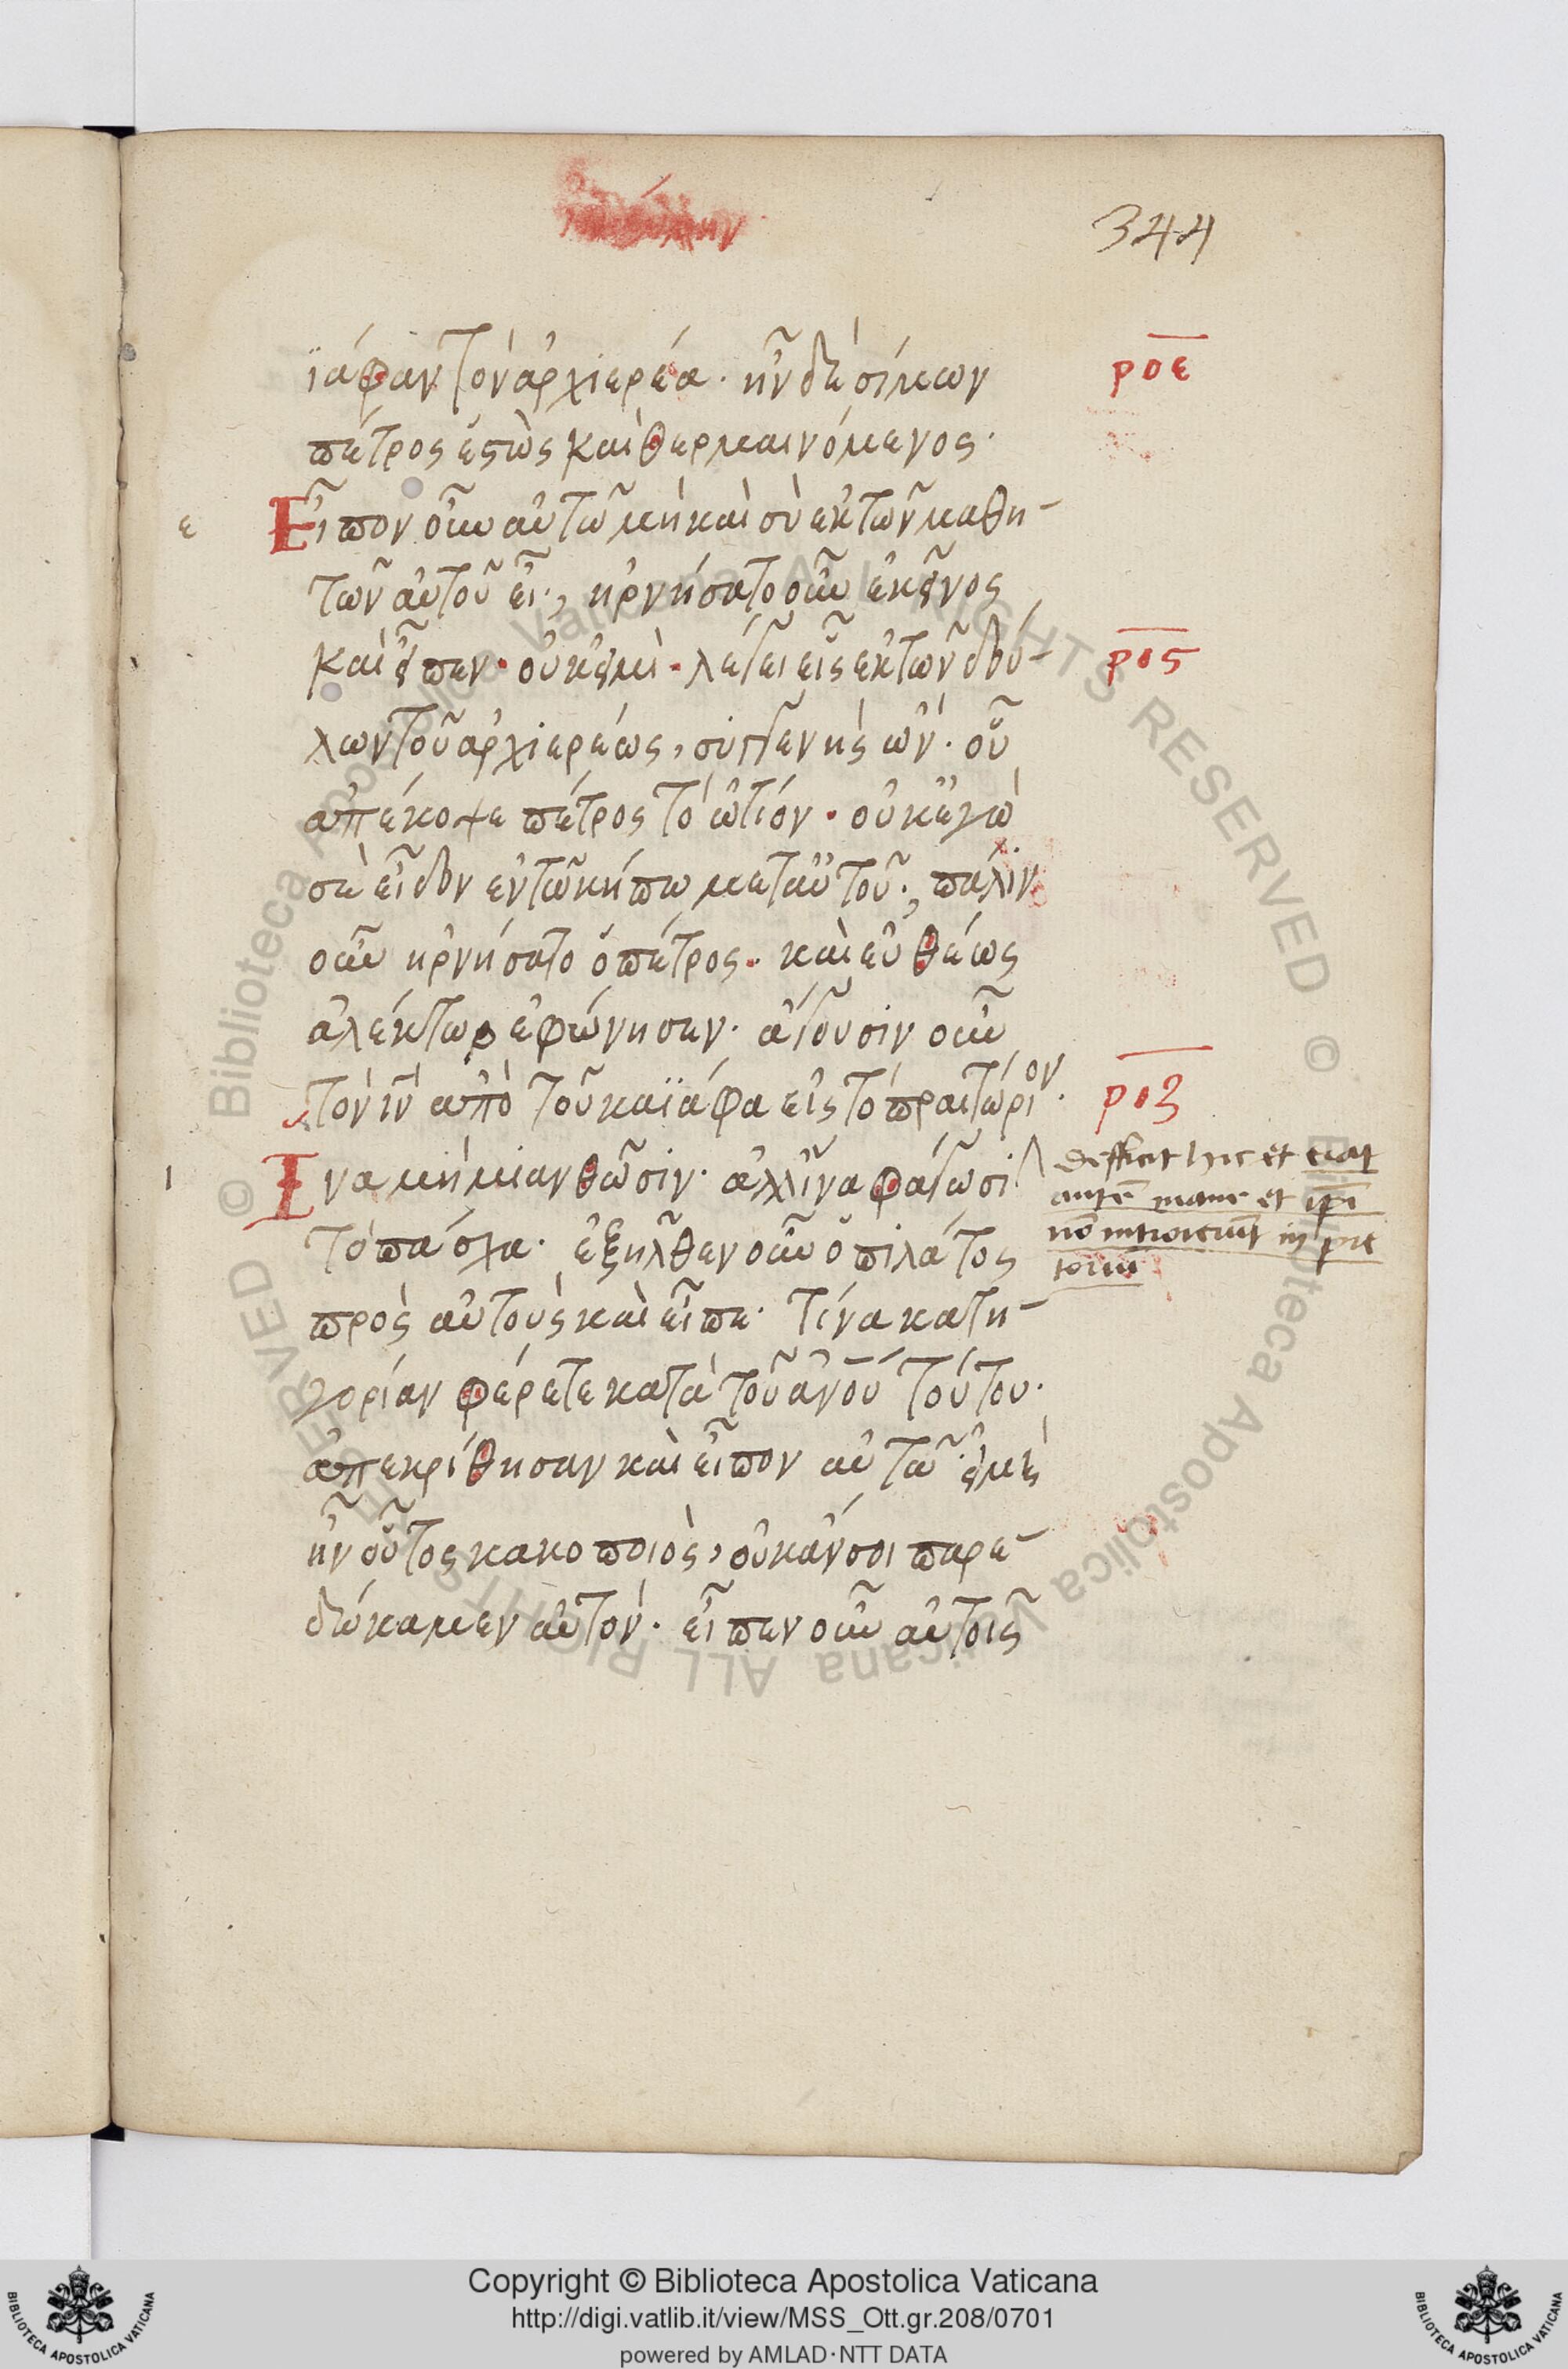 344
ϊάφαν τὸν ἀρχιερέα· ἦν δὲ σίμων
πέτρος ἑστὼς καὶ θερμαινόμενος·
Εἶπον οὖν αὐτῶ μὴ καὶ σὺ ἐκ τῶν μαθη-
τῶν αὐτοῦ εἶ·, ἠρνήσατο οὖν ἐκεῖνος
καὶ εἶπεν· οὐκ εἰμὶ· λέγει εἷς ἐκ τῶν δού-
λων τοῦ ἀρχιερέως, συγγενὴς ὢν· οὗ
ἀπέκοψε πέτρος τὸ ὠτίόν· οὐκ ἐγὼ
σὲ εἶδον ἐν τῶ κήπω μετ αὐτοῦ·, πάλιν
οὖν ἠρνήσατο ὁ πέτρος· καὶ εὐθέως
ἀλέκτωρ ἐφώνησεν· ἄγουσιν οὖν
τὸν ιν ἀπὸ τοῦ καϊάφα εἰς τὸ πραιτώριον·
Ινα μὴ μιανθῶσιν· ἀλλ ἵνα φάγωσι
τὸ πάσχα· ἐξῆλθεν οὖν ὁ πιλάτος
πρὸς αὐτοὺς καὶ εἶπε· τίνα κατη-
γορίαν φέρετε κατὰ τοῦ ἀνοῦ τούτου·
ἀπεκρίθησαν καὶ εἶπον αὐτῶ· εἰ μὴ
ἦν οὗτος κακοποιὸς, οὐκ ἄν σοι παρε-
δώκαμεν αὐτόν· εἶπεν οὖν αὐτοῖς
ροε
ε
ρος
ροζ
ι
defficit hic et erat
autē mane et ipi
nō introierūt in pre
toriū
© Biblioteca Apostolica Vaticana ALL RIGHTS RESERVED © Biblioteca Apostolica Vaticana ALL RIGHTS RESERVED
Copyright © Biblioteca Apostolica Vaticana
http://digi.vatlib.it/view/MSS_Ott.gr.208/0701
powered by AMLAD·NTT DATA
BIBLIOTECA APOSTOLICA VATICANA
BIBLIOTECA APOSTOLICA VATICANA